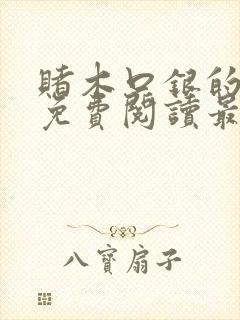 賭木口銀的
免費閱讀最
八寶扇子